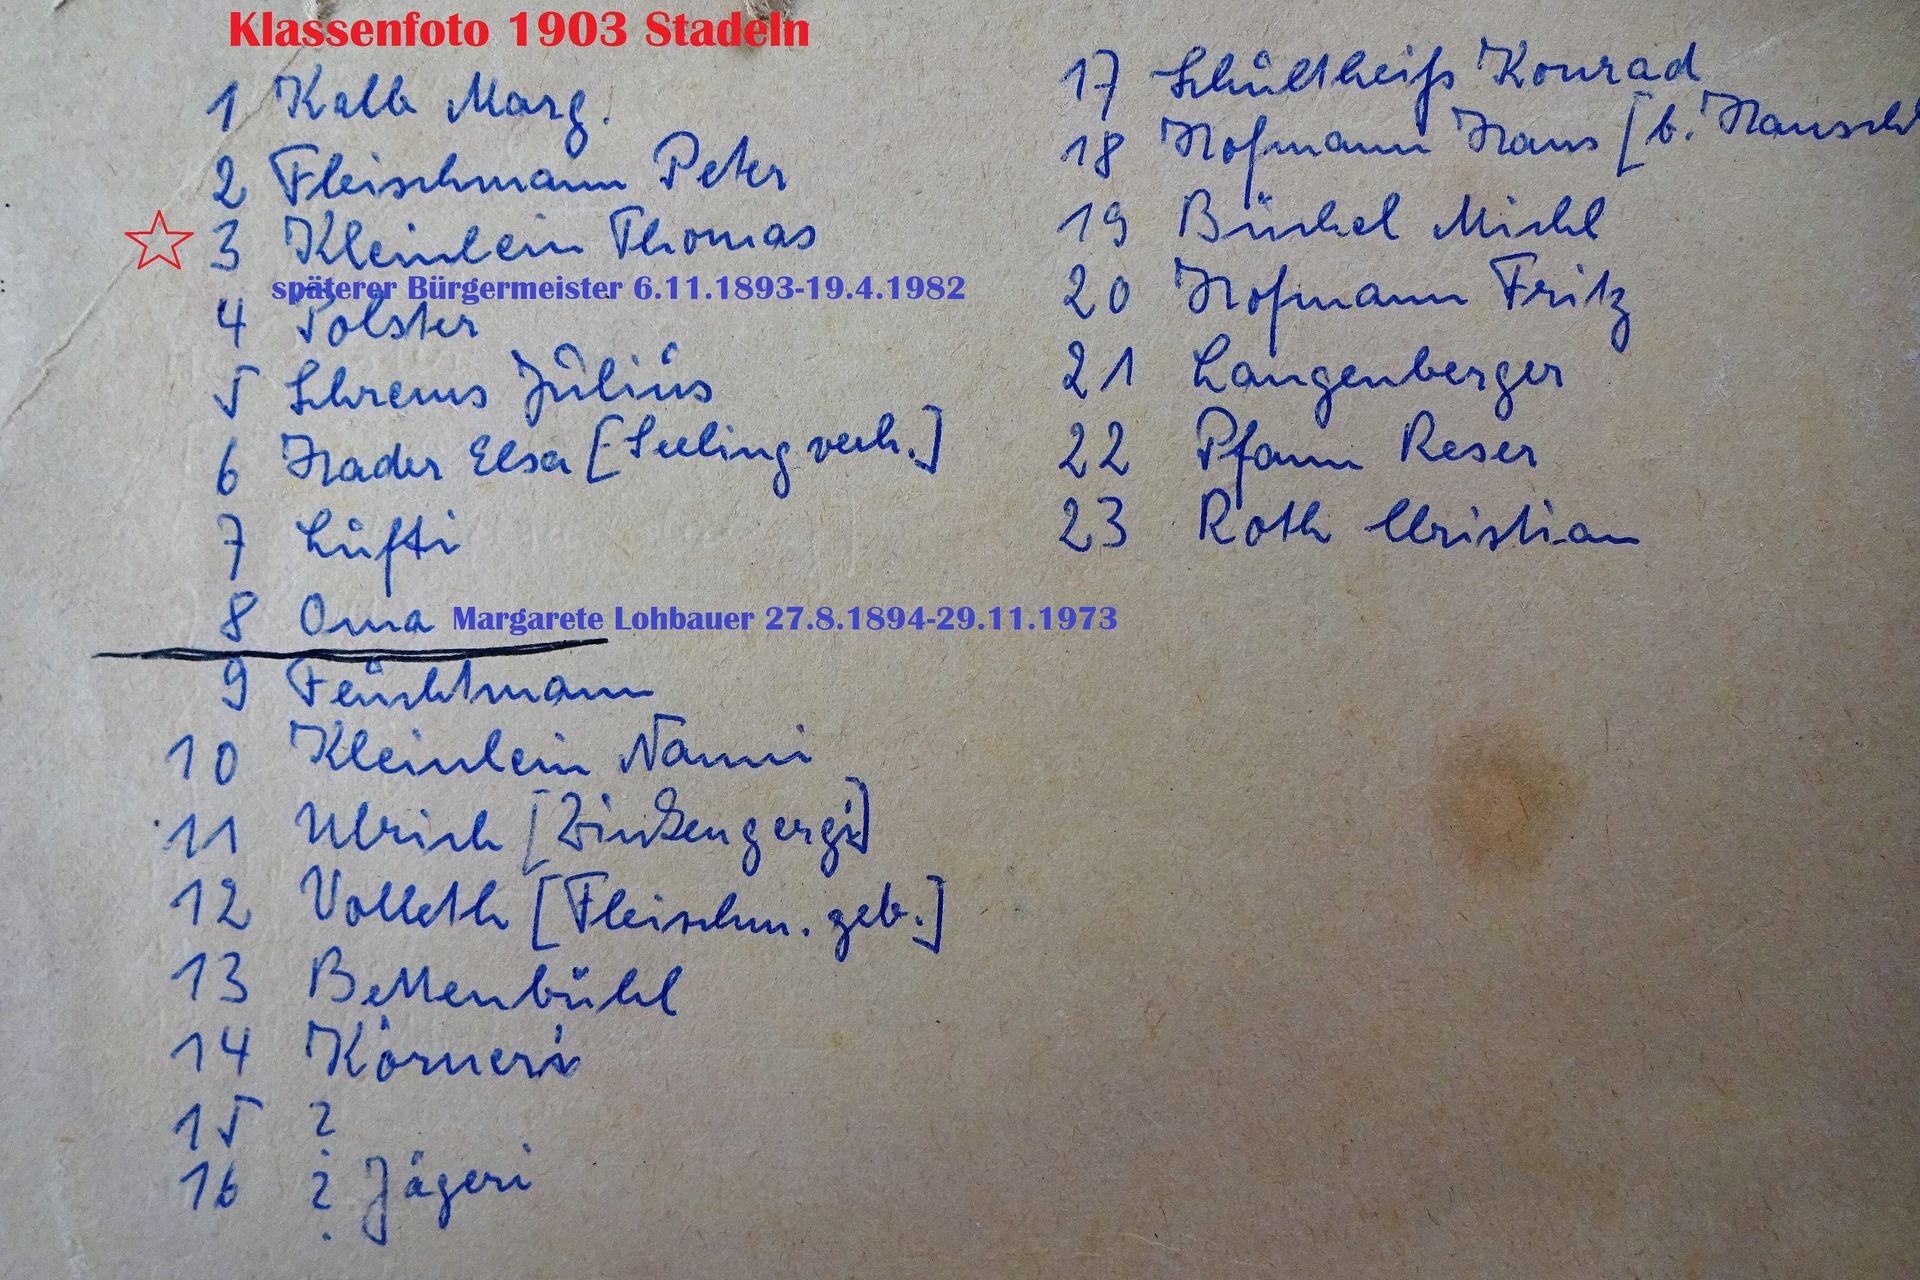 Klassenfoto 1903 Stadeln
1 Kalb Marg.
2 Fleischmann Peter
3 Kleinlein Thomas
späterer Bürgermeister 6.11.1893-19.4.1982
4 Polster
5 Schrems Julius
6 Hader Elsa [Seeling verh.]
7 Lufti
8 Oma Margarete Lohbauer 27.8.1894-29.11.1973
9 Feuchtmann
10 Kleinlein Nanni
11 Ulrich
12 Volleth [Fleischm. geb.]
13 Bettenbühl
14 Körneri
15 ?
16 ? Jägeri
17 Schultheiß Konrad
18 Hofmann Hans [b.
19 Büchel Michl
20 Hofmann Fritz
21 Langenberger
22 Pfann Reser
23 Roth Christian